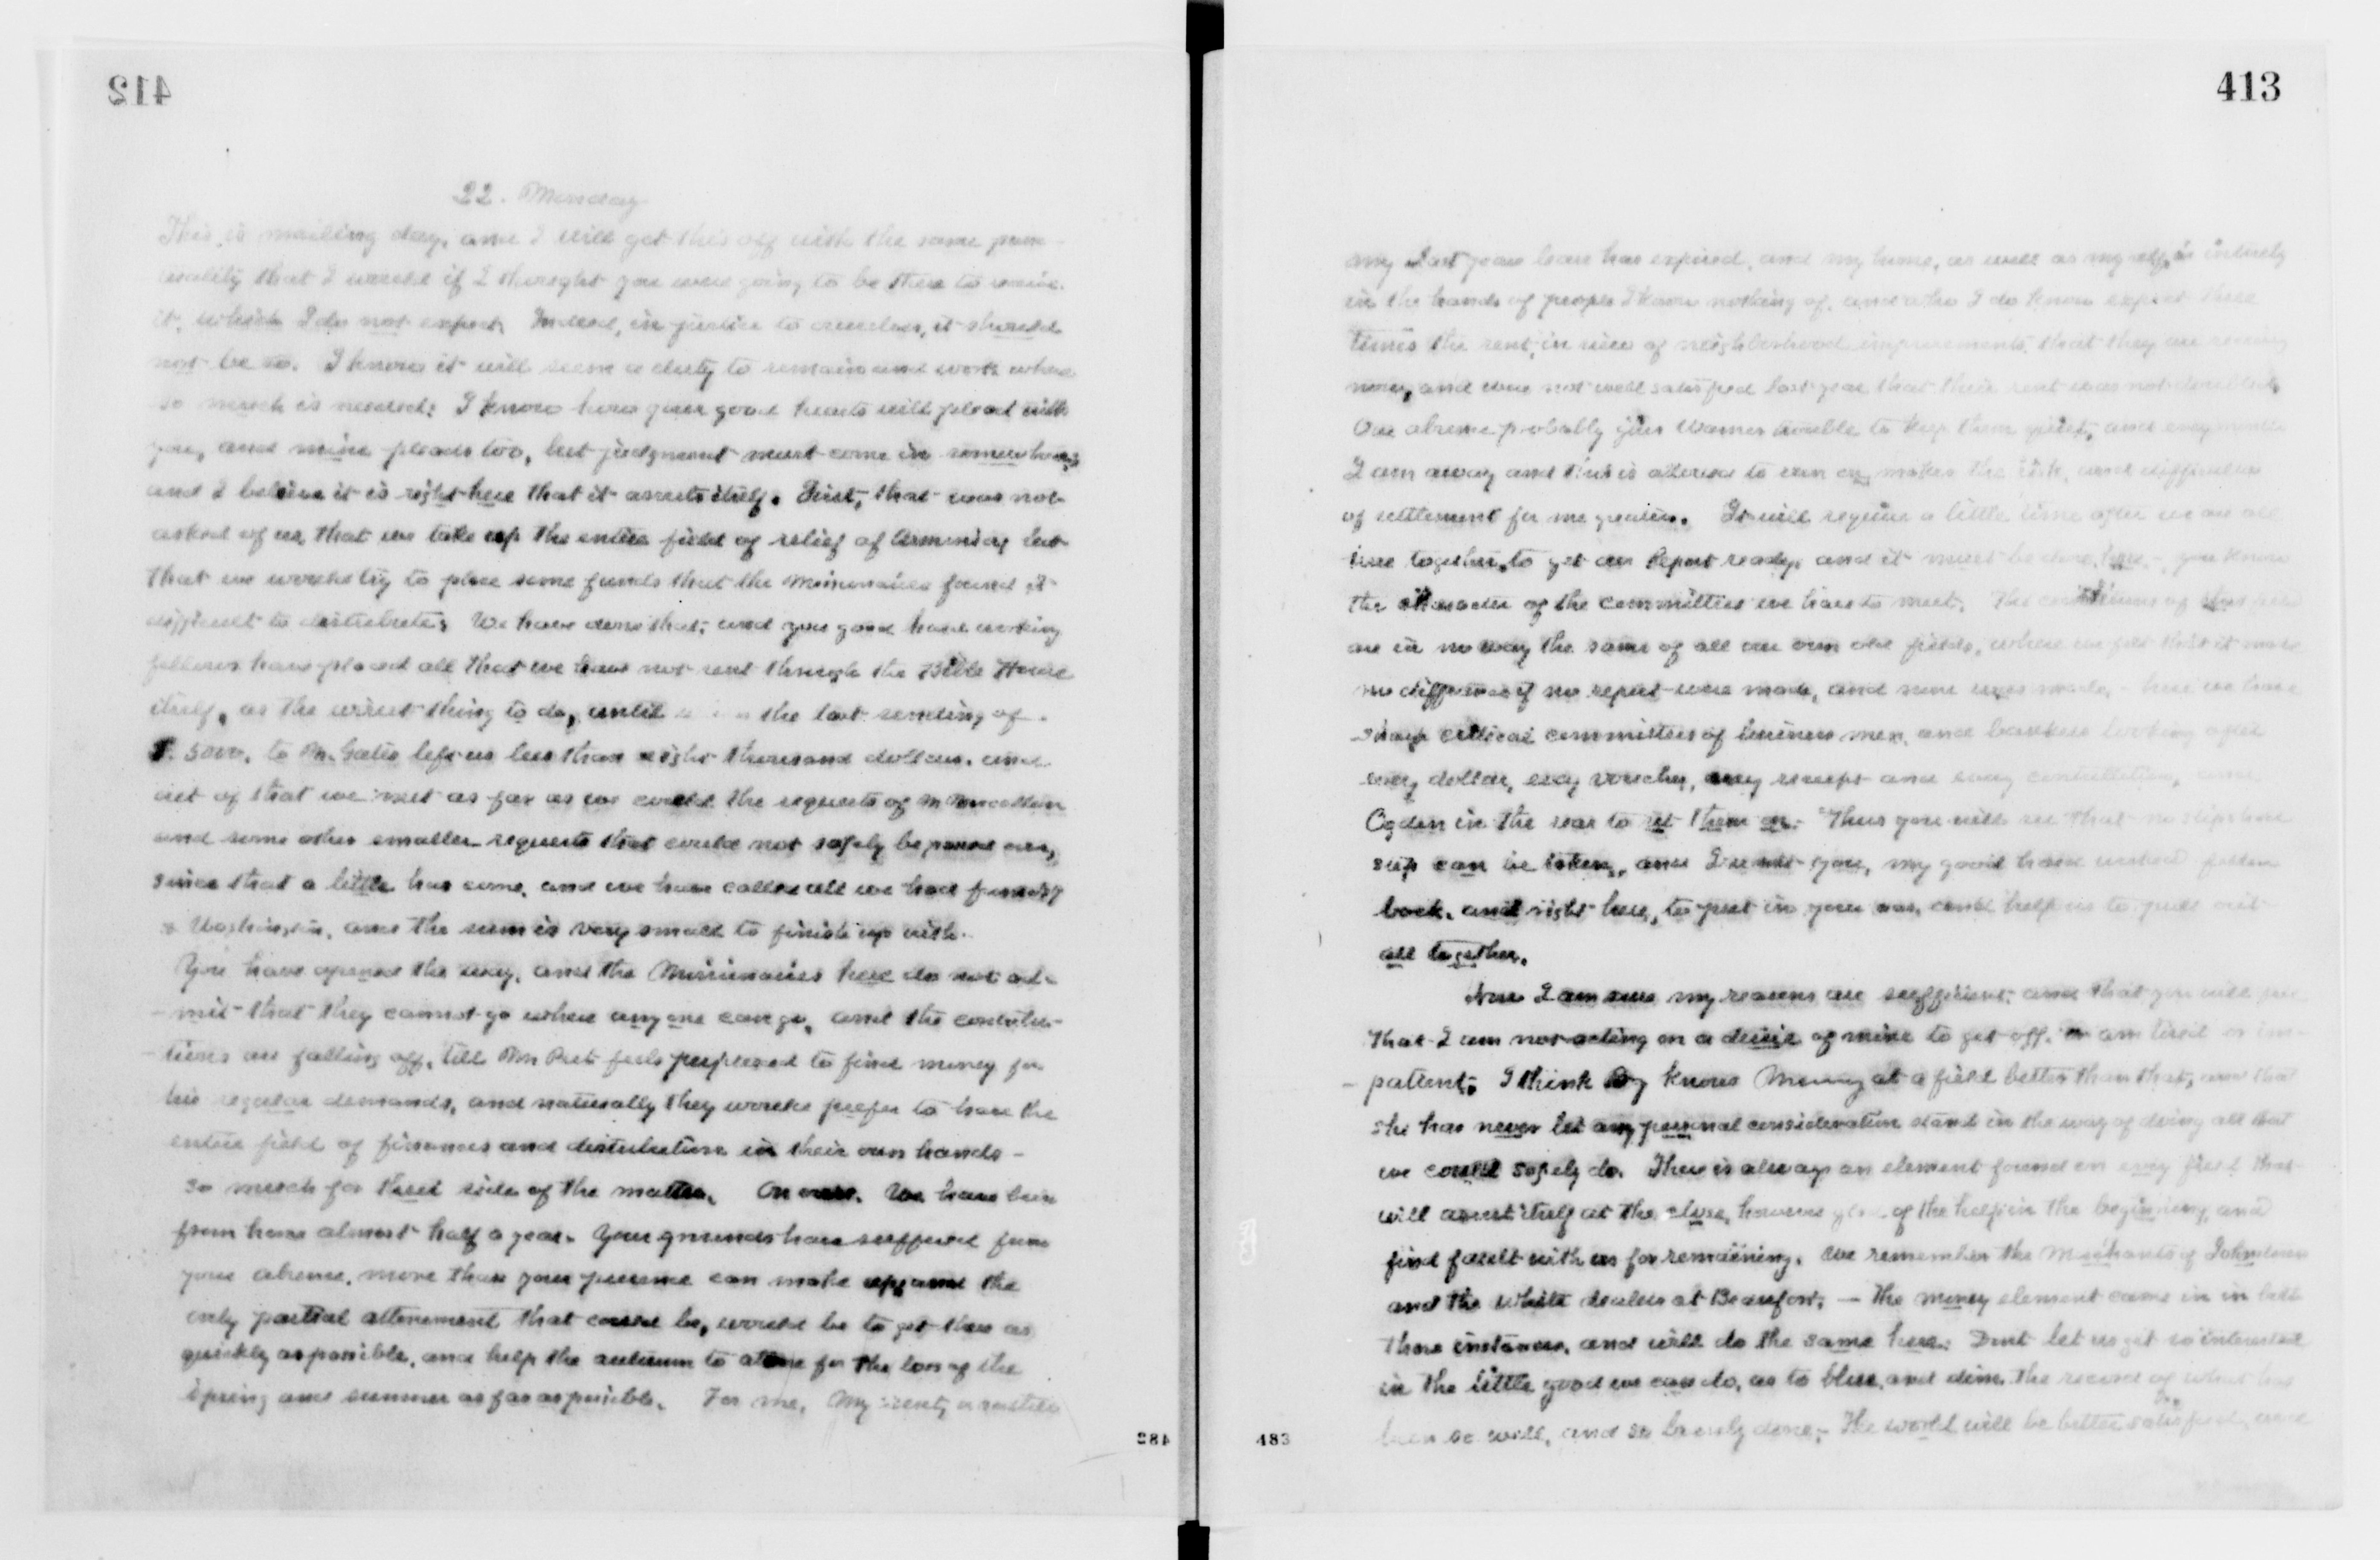 412
22. Monday
This is mailing day, and I will get this off with the same punc-
tuality that I would if I thought you were going to be there to receive
it, which I do not expect. Indeed, in justice to ourselves, it should
not be so. I know it will seem a duty to remain and work where
so much is needed: I know how your good hearts will plead with
you, and mine pleads too, but judgment must come in somewhere,
and I believe it is right here that it asserts itself. First, that was not
asked of us, that we take up the entire field of relief of Armenia, but
that we would try to place some funds that the Missionaries found it
difficult to distribute. We have done that, and you good hard working
fellows have placed all that we have not sent through the Bible House
itself, as the wisest thing to do, until the last sending of
5000, to Mr. Gates left us less than eight thousand dollars, and
out of that we met as far as we could the requests of
and some other smaller requests that could not safely be passed over,
since that a little has come, and we have called all we had from
Washington, and the sum is very small to finish up with.
You have opened the way, and the Missionaries here do not ad-
mit that they cannot go where anyone can go, and the contribu-
tions are falling off, till Mr Peet feels perplexed to find money for
his regular demands, and naturally they would prefer to have the
entire field of finances and distribution in their own hands -
so much for their side of the matter. On ours. We have been
from home almost half a year. Your grounds have suffered from
your absence, more than your presence can make up, and the
only partial atonement that could be, would be to get there as
quickly as possible, and help the autumn to atone for the loss of the
spring and summer as far as possible. For me, My
482
413
my last years lease has expired, and my home, as well as myself, is entirely
in the hands of people I know nothing of, and who I do know expect three
times the rent, in view of neighborhood improvements, that they are receiving
now, and were not well satisfied last year that their rent was not doubled.
Our absence probably gives Warner trouble to keep them quiet, and every month
I am away and this is allowed to run on, makes the risk, and difficulties
of settlement for me greater. It will require a little time after we are all
here together, to get our Report ready, and it must be done here, - you know
the character of the committees we have to meet. The conditions of this field
are in no way the same of all our own old fields, where we felt that it made
no difference if no report were made, and none was made, - here we have
sharp critical committees of business men, and bankers looking after
every dollar, every voucher, every receipt and every cancellation, and
Ogden in the rear to set them on. Thus you will see that no slipshod
step can be taken, and I want you, my good hard worked
back, and right here, to put in your oar, and help us to pull out
all together.
Now I am sure my reasons are sufficient, and that you will see
that I am not acting on a desire of mine to get off. or am tired or im-
patient; I think By knows at a field better than that, and that
she has never let any personal consideration stand in the way of doing all that
we could safely do. There is always an element found on every field that
will assert itself at the close, however glad of the help in the beginning, and
find fault with us for remaining. We remember the Merchants of Johnstown
and the white dealers at Beaufort, - the money element came in in both
those instances, and will do the same here. Dont let us get so interested
in the little good we can do, as to blur, and dim, the record of what has
been so well, and so bravely done; The world will be better satisfied, and
483